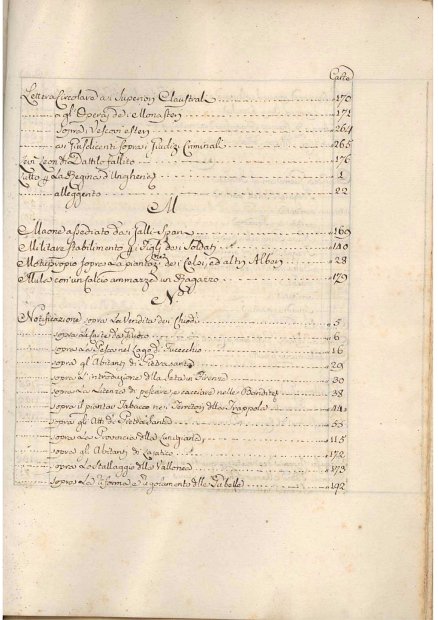 Carte
Lettera Circolare ai Superiori Claustrali 170
agl'Operaj dei Monasteri 171
sopra i Vescovi esteri 264
ai Jusdicenti sopra i Giudizi Criminali 265
Levi Leon di Dattilo fallito 176
Lutto p la Regina d'Ungheria 1
alleggerito 22
M
Maone assediato dai Galli-Span 169
Militare stabilimento p i Figli dei Soldati 140
Motuproprio sopra la piantaz dei Gelsi, ed altri Alberi 28
Mula con un calcio ammazza un Ragazzo 179
N
Notificazione sopra la Vendita dei 5
sopra 6
sopra la Pesca nel Lago di Fucecchio 16
sopra gli Abitanti di Pietrasanta 29
sopra l'introduzione della Seta in Firenze 30
sopra la Licenza di pescare, e cacciare nelle Bandite 38
sopra il piantar Tabacco nei Territori della Trappola 44
sopra gli Atti di Pietrasanta 55
sopra la Provincia della Lunigiana 115
sopra gli Abitanti di 172
sopra lo Stallaggio della 173
sopra la riforma e regolamento delle Gabelle 192